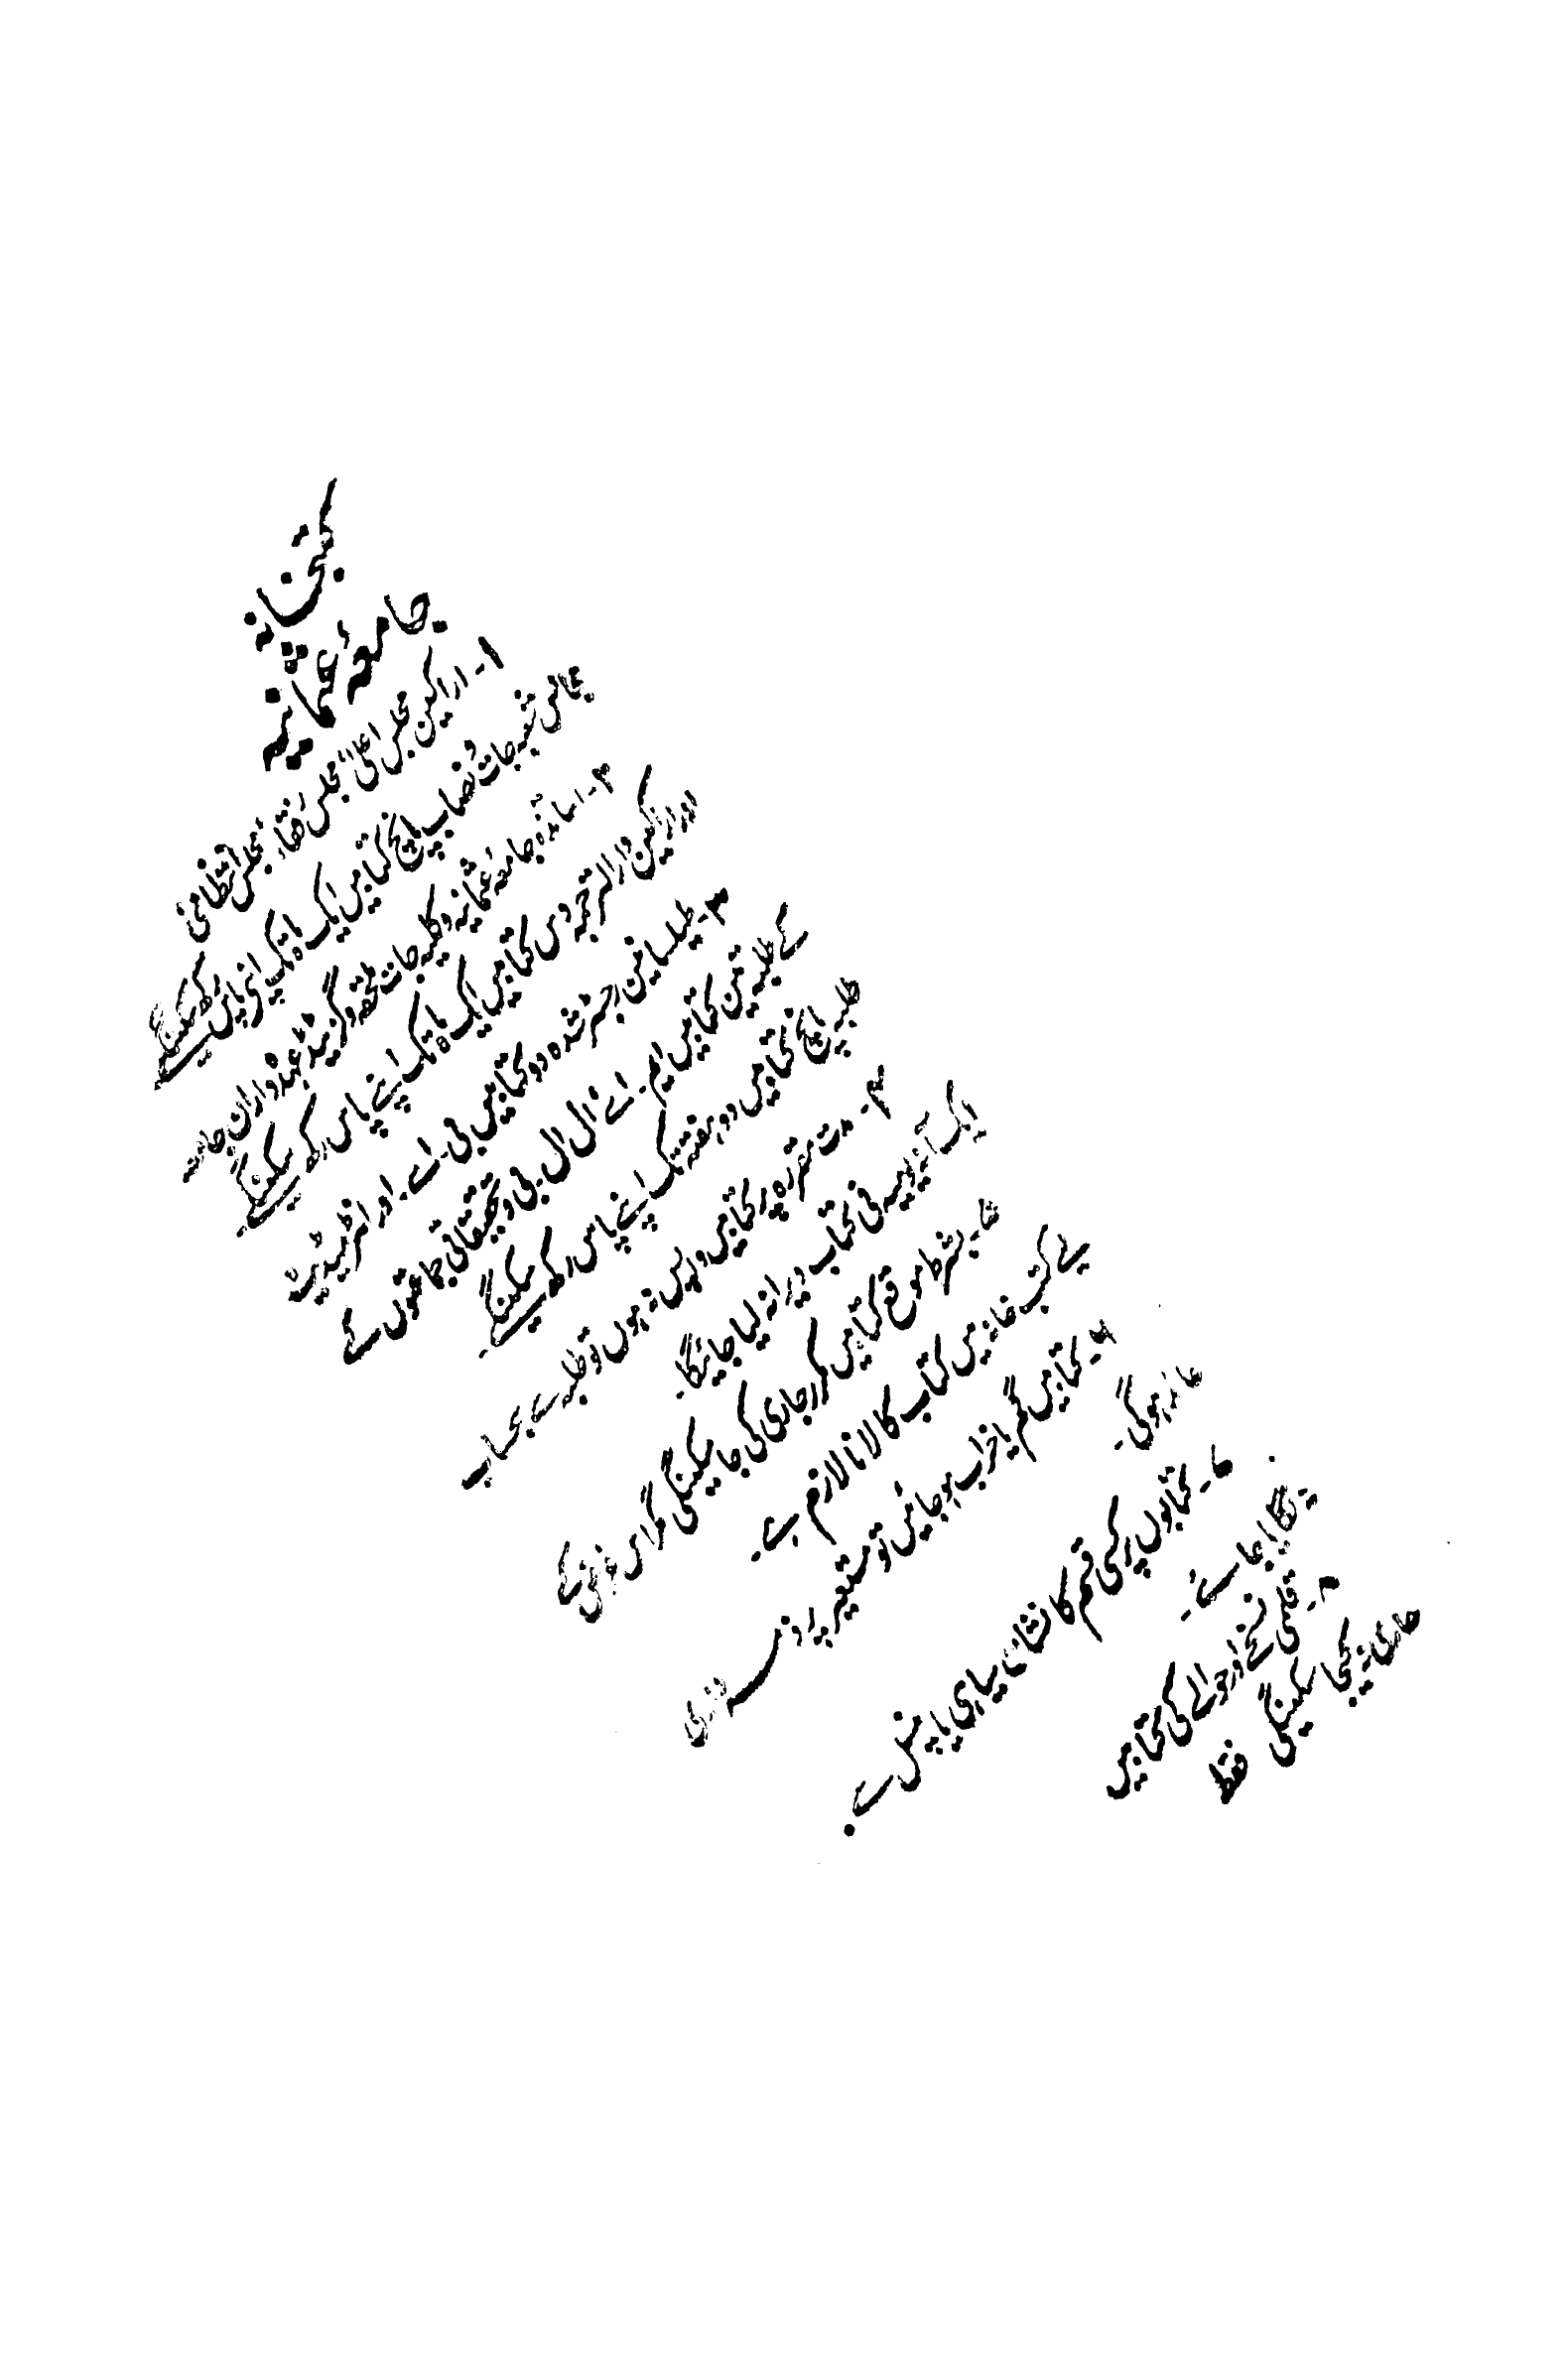 کتبخانہ
جامعہ عثمانیہ
۱۔ اراکین مجلس اعلیٰ، مجلس رفقاء، مجلس انتظامی
مجالس شعبہ جات و نصاب پانچ کتابیں ایک ماہ تک اپنے پاس رکھ سکینگے
۲۔ اساتذہ جامعہ عثمانیہ و کلیہ جات ملحقہ و گزیٹڈ عہدہ داران جامعہ
اور اراکین دارالترجمہ دس کتابیں ایک ماہ تک اپنے پاس رکھ سکینگے۔
۳۔ طیلسانین رجسٹر شدہ دو کتابیں بی۔ اے۔ اور انٹرمیڈیٹ
کے طلبہ تین کتابیں ایم۔ اے۔ ال ال۔ بی و تحقیقاتی جماعتوں کے
طلبہ پانچ کتابیں دو ہفتہ تک اپنے پاس رکھ سکینگے۔
۴۔ مدت مقررہ پر کتابیں واپس نہ ہوں تو طلبہ سے بحساب
ایک آنہ یومیہ فی کتاب ہرجانہ لیا جائیگا۔
۵۔ بشرط موقع کتابیں مکرر جاری کی جا سکینگی مگر اس غرض کے
لئے کتب خانہ میں کتاب کا لانا لازم ہے۔
۶۔ کتابیں گم یا خراب ہو جائیں تو مستعیر پر ذمہ داری
عائد ہوگی۔
۷۔ کتابوں پر کسی قسم کا نشان سیاہی یا پنسل سے
نہ کیا جائے۔
۸۔ قلمی نسخے اور حوالے کی کتابیں
جاری نہ کیجا سکینگی فقط